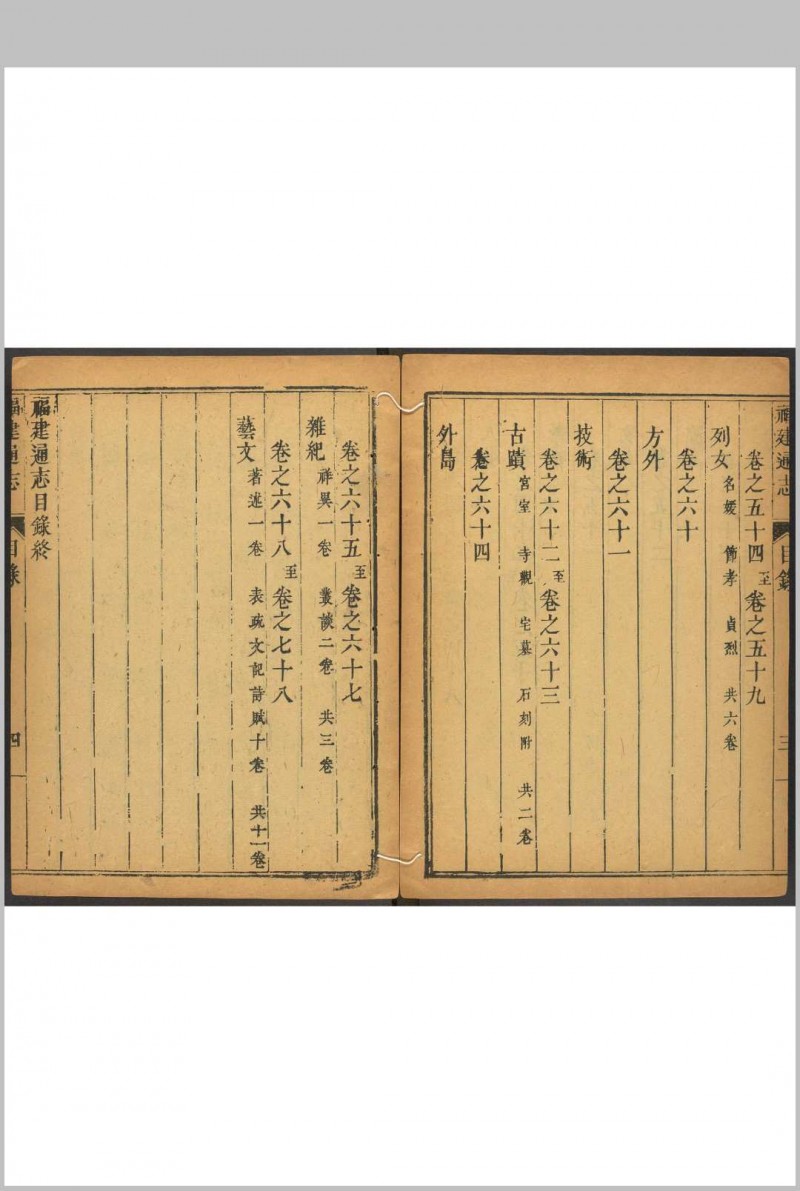 福建通志
目錄
三
卷之五十四至卷之五十九
列女 名媛 節孝 貞烈 共六卷
卷之六十
方外
卷之六十一
技術
卷之六十二至卷之六十三
古蹟 宮室 寺觀 宅墓 石刻附 共二卷
卷之六十四
外島
卷之六十五至卷之六十七
雜紀 祥異一卷 叢談二卷 共三卷
卷之六十八至卷之七十八
藝文 著述一卷 表疏文記詩賦十卷 共十一卷
福建通志目錄終
福建通志
目錄
四